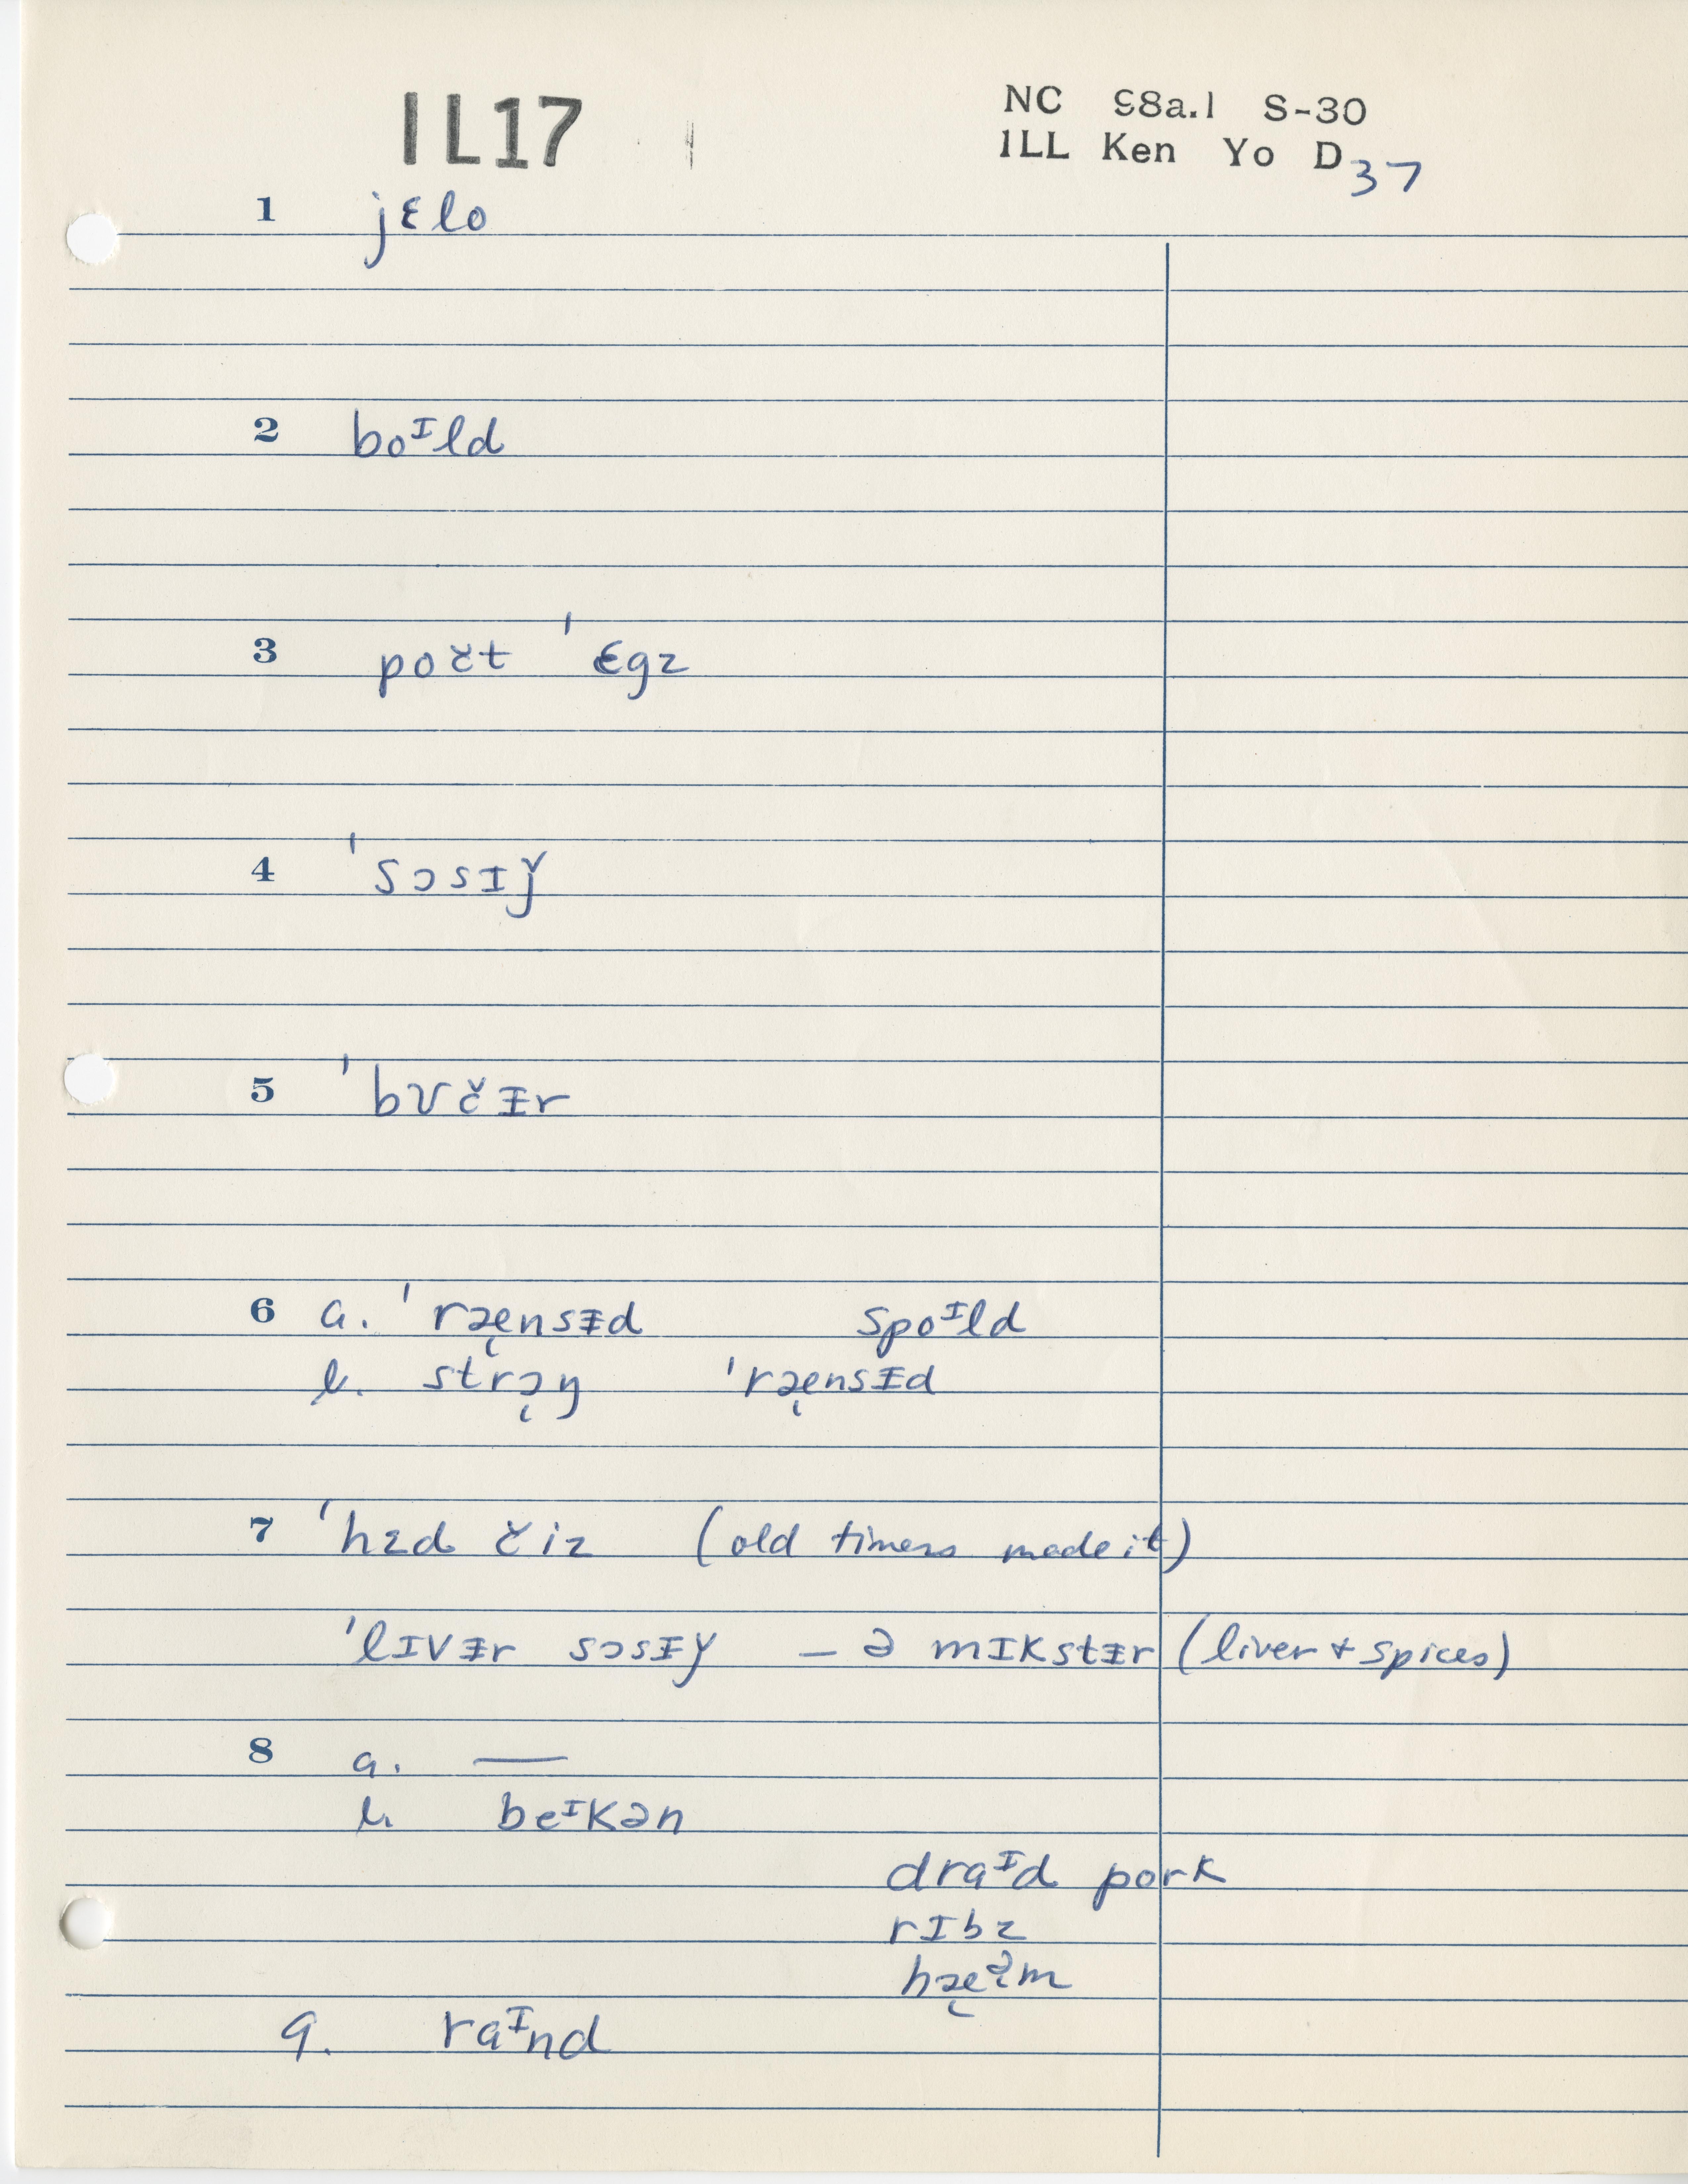 IL17
NC 98a.1 S-30
ILL Ken Yo D 37
1 jɛlo
2 boᶦld
3 počt ˈɛgz
4 ˈsɔsɪǰ
5 ˈbʊčɨr
6 a. ˈræ̨nsɨd spoᶦld
b. strɔ̨ŋ ˈræ̨nsɨd
7 ˈhɛd čiz (old timers made it)
ˈlɪvɨr sɔsɨǰ – ə mɪkstɨr (liver + spices)
8 a. —
b. beᶦkən
draᶦd pork
rɪbz
hæ̨ᵊm
9. raᶦnd